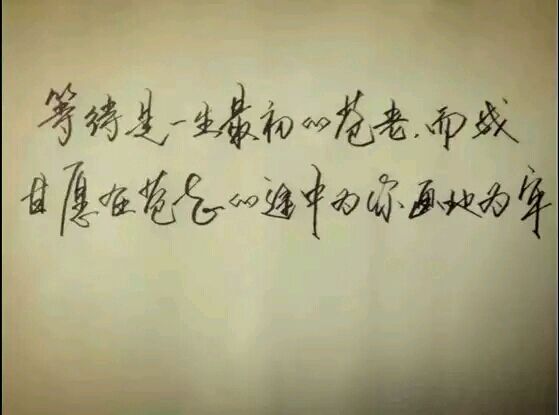 等待是一生最初的苍老,而我
甘愿在苍老的途中为你画地为牢